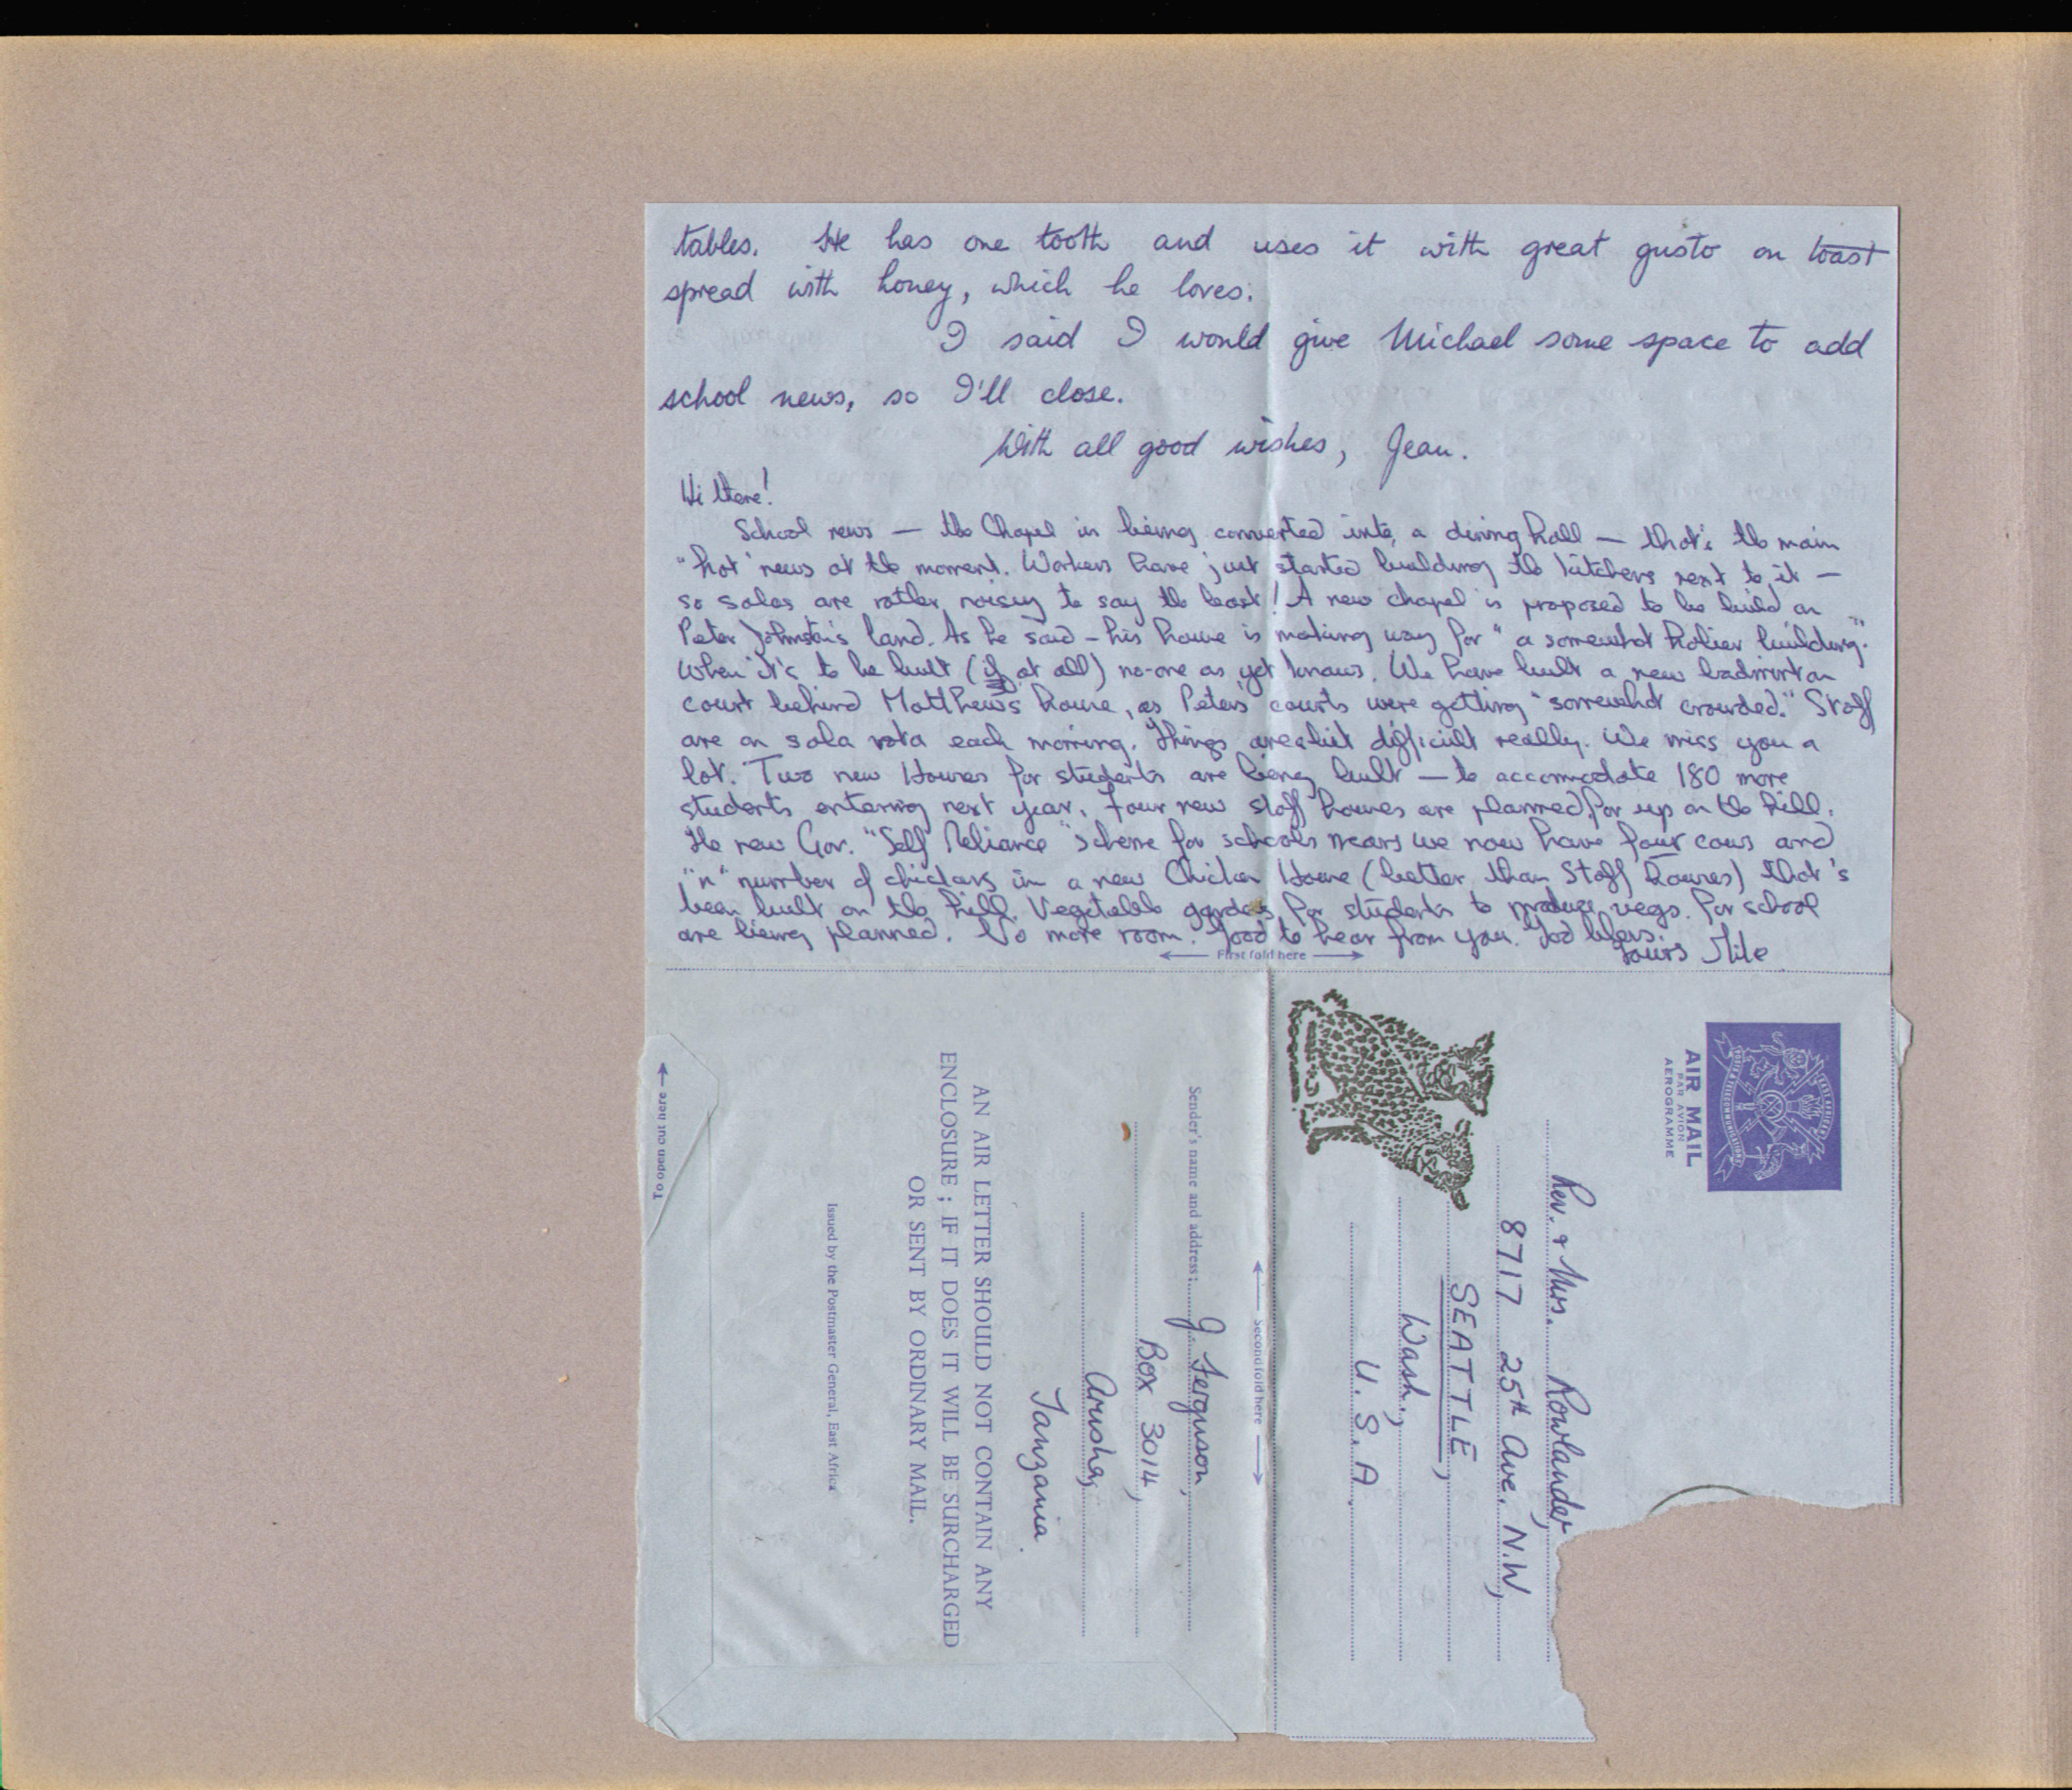 tables. He has one tooth and uses it with great gusto on toast
spread with honey, which he loves.
I said I would give Michael some space to add
school news, so I'll close.
With all good wishes, Jean.
Hi there!
School news — the Chapel in being converted into a dining hall — that's the main
"hot" news at the moment. Workers have just started building the kitchens next to it —
so salas are rather noisy to say the least! A new chapel is proposed to be build on
Peter Johnston's land. As he said – his house is making way for "a somewhat holier building."
When it's to be built (if at all) no-one as yet knows. We have built a new badminton
court behind Matthew's house, as Peter's courts were getting "somewhat crowded." Staff
are on sala rota each morning. Things are a bit difficult really. We miss you a
lot. Two new Houses for students are being built — to accomodate 180 more
students entering next year. Four new staff houses are planned for up on the hill.
The new Gov. "Self Reliance" scheme for schools means we now have four cows and
"n" number of chickens in a new Chicken House (better than Staff houses) that's
been built on the hill. Vegetable gardens for students to produce vegs. for school
are being planned. No more room. Good to hear from you. God bless.
Yours Mike
First fold here
To open cut here
AN AIR LETTER SHOULD NOT CONTAIN ANY
ENCLOSURE ; IF IT DOES IT WILL BE SURCHARGED
OR SENT BY ORDINARY MAIL.
Issued by the Postmaster General, East Africa
Sender's name and address : J. Ferguson,
Box 3014,
Arusha,
Tanzania.
Second fold here
AIR MAIL
PAR AVION
AEROGRAMME
Rev. & Mrs. Rowlander,
8717 25th Ave. N.W,
SEATTLE,
Wash.,
U. S. A.